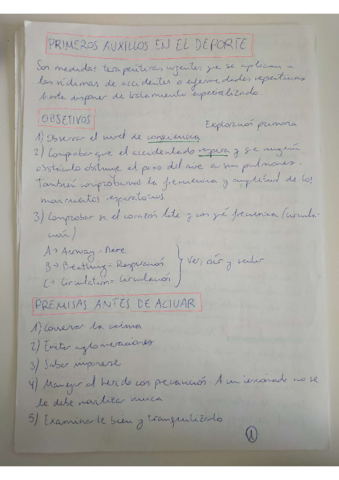 PRIMEROS AUXILIOS EN EL DEPORTE
Son medidas terapéuticas urgentes que se aplican a
las víctimas de accidentes o enfermedades repentinas
hasta disponer de tratamiento especializado.
OBJETIVOS
Exploración primaria
1) Observar el nivel de consciencia
2) Comprobar que el accidentado respira y que ningún
obstáculo obstruye el paso del aire a sus pulmones.
También comprobamos la frecuencia y amplitud de los
movimientos respiratorios
3) Comprobar si el corazón late y con qué frecuencia (circula-
ción)
A → Airway -
B → Breathing - Respiración
C → Circulation - Circulación
Ver, oír y sentir
PREMISAS ANTES DE ACTUAR
1) Conservar la calma
2) Evitar aglomeraciones
3) Saber imponerse
4) Manejar al herido con precaución. A un lesionado no se
le debe movilizar nunca
5) Examinarle bien y tranquilizarlo
1